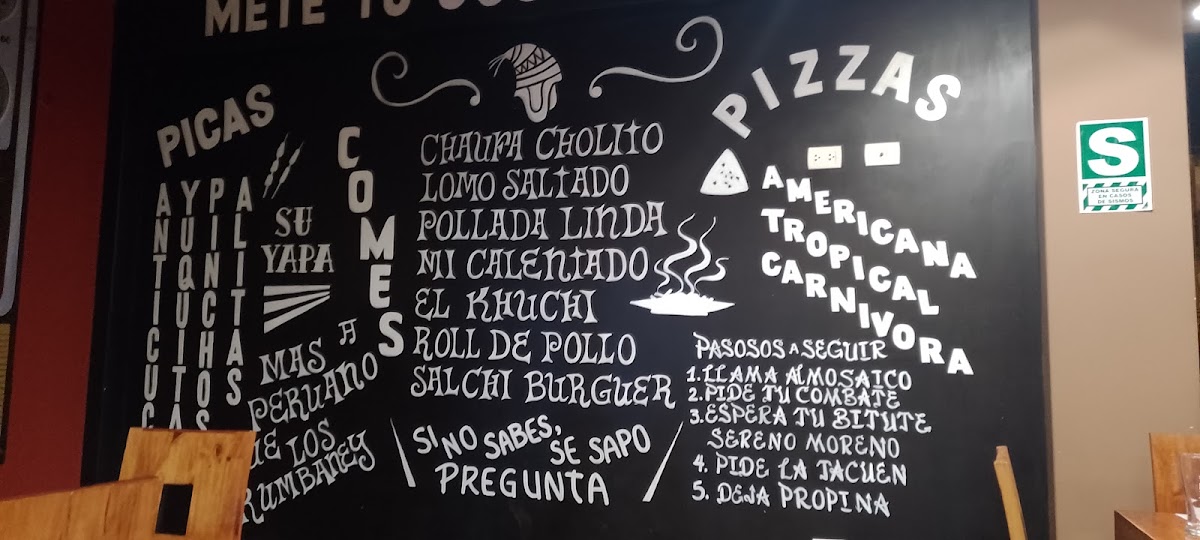 METE TU
PICAS
ANTICUC
YUQUITAS
PINCHOS
ALITAS
SU
YAPA
MAS A
PERUANO
UE LOS
RUMBANEY
COMES
CHAUFA CHOLITO
LOMO SALTADO
POLLADA LINDA
MI CALENTADO
EL KHUCHI
ROLL DE POLLO
SALCHI BURGUER
SI NO SABES,
SE SAPO
PREGUNTA
PIZZAS
AMERICANA
TROPICAL
CARNIVORA
PASOSOS A SEGUIR
1. LLAMA AL MOSAICO
2. PIDE TU COMBATE
3. ESPERA TU BITUTE
SERENO MORENO
4. PIDE LA TACUEN
5. DEJA PROPINA
S
ZONA SEGURA
EN CASOS
DE SISMOS